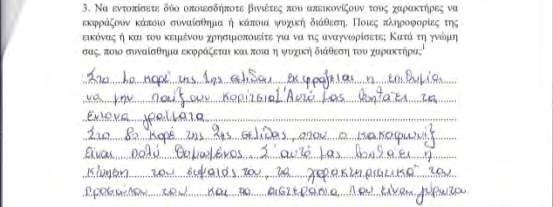 3. Να εντοπίσετε δύο οποιεσδήποτε βινιέτες που απεικονίζουν τους χαρακτήρες να
εκφράζουν κάποιο συναίσθημα ή κάποια ψυχική διάθεση. Ποιες πληροφορίες της
εικόνας ή και του κειμένου χρησιμοποιείτε για να τις αναγνωρίσετε; Κατά τη γνώμη
σας, ποιο συναίσθημα εκφράζεται και ποια η ψυχική διάθεση του χαρακτήρα;
Στο 1ο καρέ της 1ης σελίδας εκφράζεται η επιθυμία
να μην παίξουν κορίτσια. Αυτό μας βοηθάει τα
έντονα γράμματα
Στο 8ο καρέ της σελίδας, όπου ο κακοφωνίξ
είναι πολύ θυμωμένος. Σ' αυτό μας βοηθάει η
κίνηση του σώματός του, τα χαρακτηριστικά του
προσώπου του και τα αστεράκια που είναι γύρω του